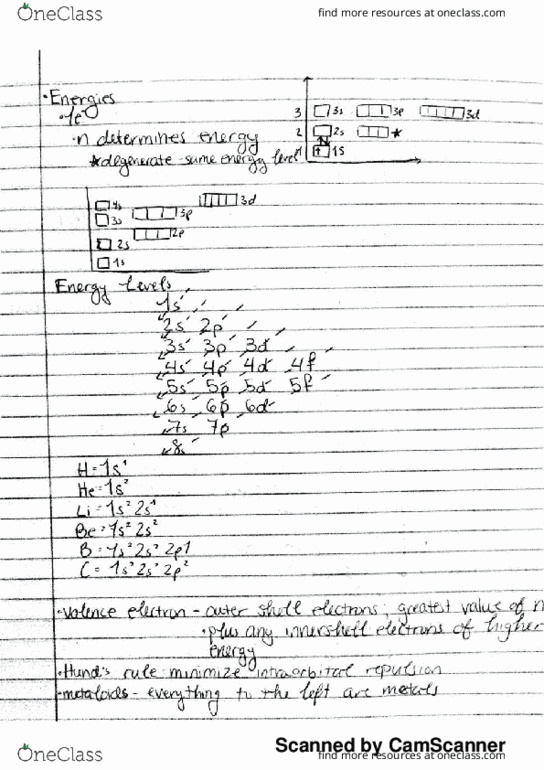 OneClass
find more resources at oneclass.com
• Energies
• 1e⊖
• n determines energy
*degenerate same energy level
3 3s 3p 3d
2 2s *
1 1s
4s 3d
3s 3p
2s 2p
1s
Energy Levels
1s
2s 2p
3s 3p 3d
4s 4p 4d 4f
5s 5p 5d 5f
6s 6p 6d
7s 7p
8s
H = 1s¹
He = 1s²
Li = 1s² 2s¹
Be = 1s² 2s²
B = 1s² 2s² 2p1
C = 1s² 2s² 2p²
• Valence electron - outer shell electrons; greatest value of n
• plus any innershell electrons of higher
energy
• Hund's rule minimize intraorbital repulsion
• metaloids - everything to the left are metals
Scanned by CamScanner
OneClass
find more resources at oneclass.com